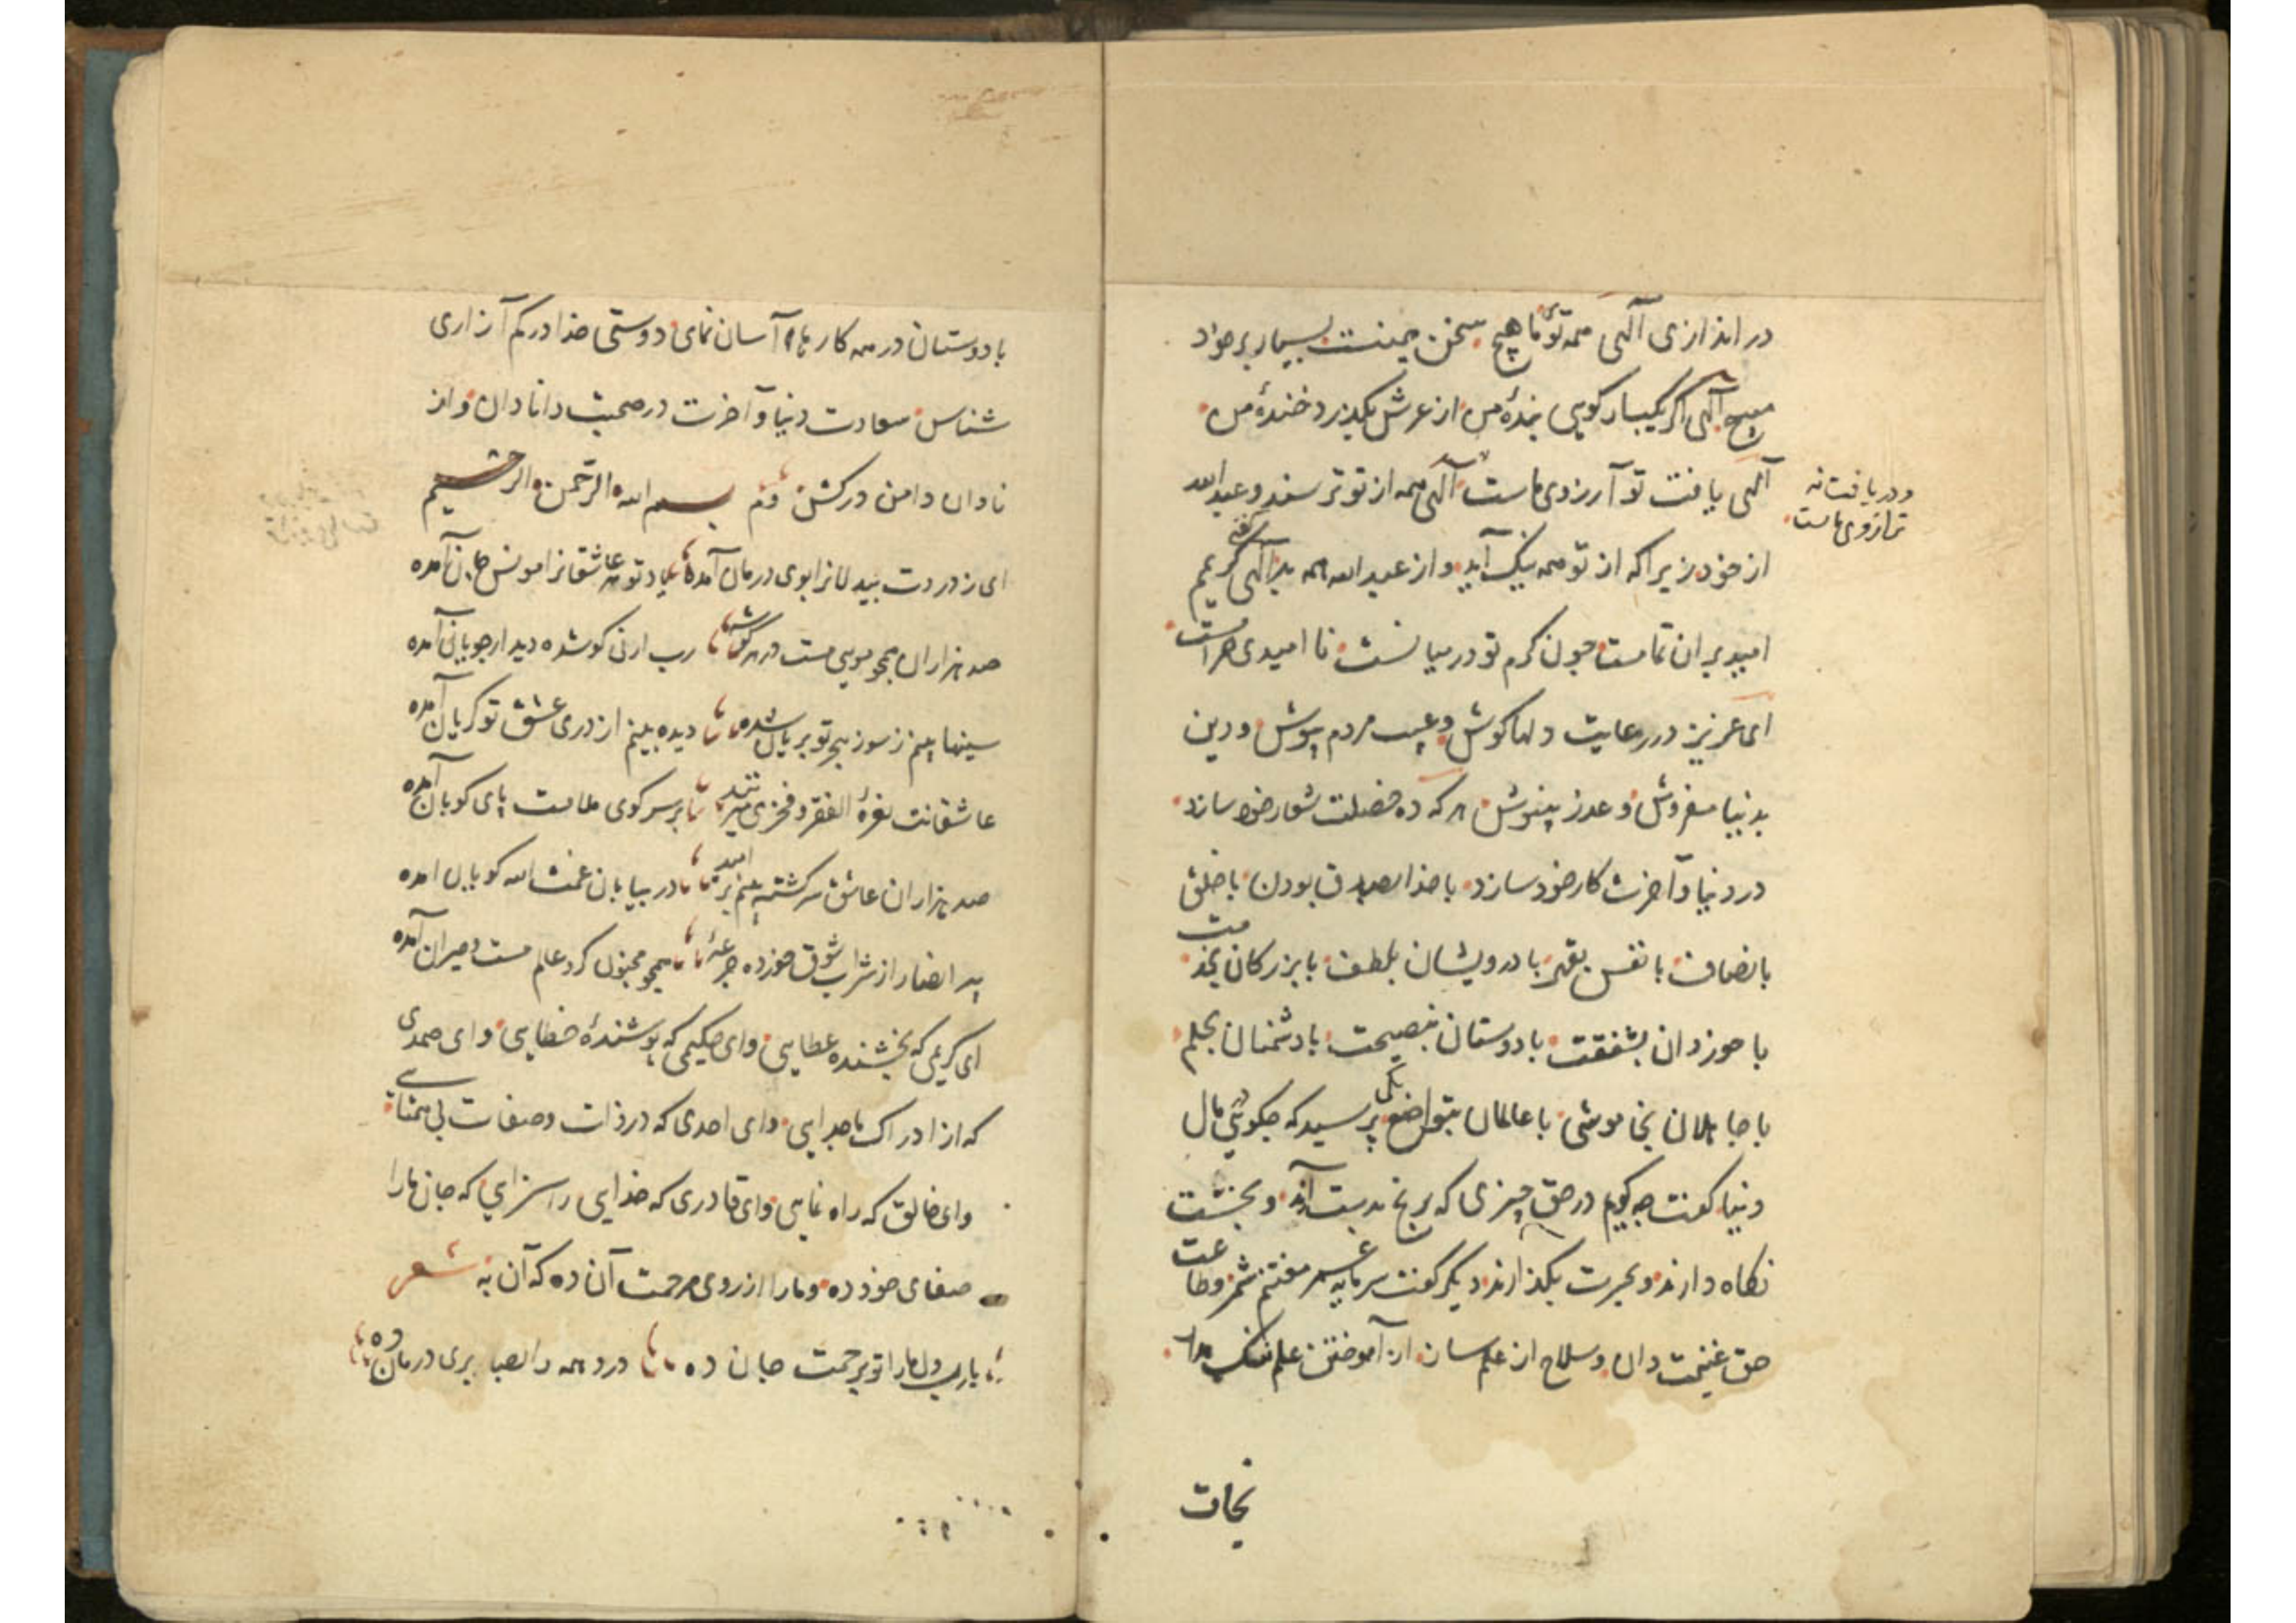 در اندازی الهی همه توئی ما هیچ سخن همینست بسیار بر خواد
مپیچ الهی اگر یکبار کویی بندهٔ من از عرش بکذرد خندهٔ من
الهی یافت تو آرزوی ماست الهی همه از تو ترسند و عبدالله
و دریافت نه
ترازوی ماست
از خود زیرا که از تو همه نیک آید و از عبدالله همه بد الهی گر
امید بران تماست چون کرم تو در میانست نا امیدی حرامست
ای عزیز در رعایت دلها کوش و عیب مردم بپوش و دین
بدنیا مفروش و عذر بنیوش هر که ده خصلت شعار خود سازد
در دنیا و آخرت کار خود سازد با خدا بصدق بودن با خلق
بانصاف با نفس بقهر با درویشان بلطف با بزرکان بخدمت
با خوردان بشفقت با دوستان بنصیحت با دشمنان بحلم
با جاهلان بخاموشی با عالمان بتواضع یکی پرسید که چکوئی مال
دنیا کفت چه کویم در حق چیزی که برنج بدست آرند و بخست
نکاه دارند و بحسرت بکذارند دیکر کفت سرمایه عمر مغتنم شمر و طاعت
حق غنیمت دان و سلاح از علم سان از آموختن علم ننک مدار
نجات
با دوستان در همه کارها آسان نمای دوستی خدا در کم آزاری
شناس سعادت دنیا و آخرت در صحبت دانا دان و از
نادان دامن درکش تم بسم الله الرحمن الرحیم
ای ز دردت بیدلانرا بوی درمان آمده یاد تو مر عاشقانرا مونس جان آمده
صد هزاران همچو موسی مست در هر کوشه رب ارنی کو شده دیدار جویان آمده
سینها بینم ز سوز هجر تو بریان شده دیده بینم از دری عشق تو کریان آمده
عاشقانت نعرهٔ الفقر و فخری میزنند بر سر کوی ملامت پای کوبان آمده
صد هزاران عاشق سرکشته بینم بر امید در بیابان غمت الله کویان امده
پیر انصار از شراب شوق خورده جرعهٔ همچو مجنون کرد علم مست و حیران آمده
ای کریمی که بخشنده عطایی و ای حکیمی که پوشندهٔ خطایی و ای صمدی
که از ادراک ما جدایی و ای احدی که در ذات و صفات بی همتایی
و ای خالق که راه نمایی و ای قادری که خدایی را سزایی که جان ما را
صفای خود ده و ما را از روی مرحمت آن ده که آن به شعر
یارب دل ما را تو برحمت جان ده درد همه را بصابری درمان ده